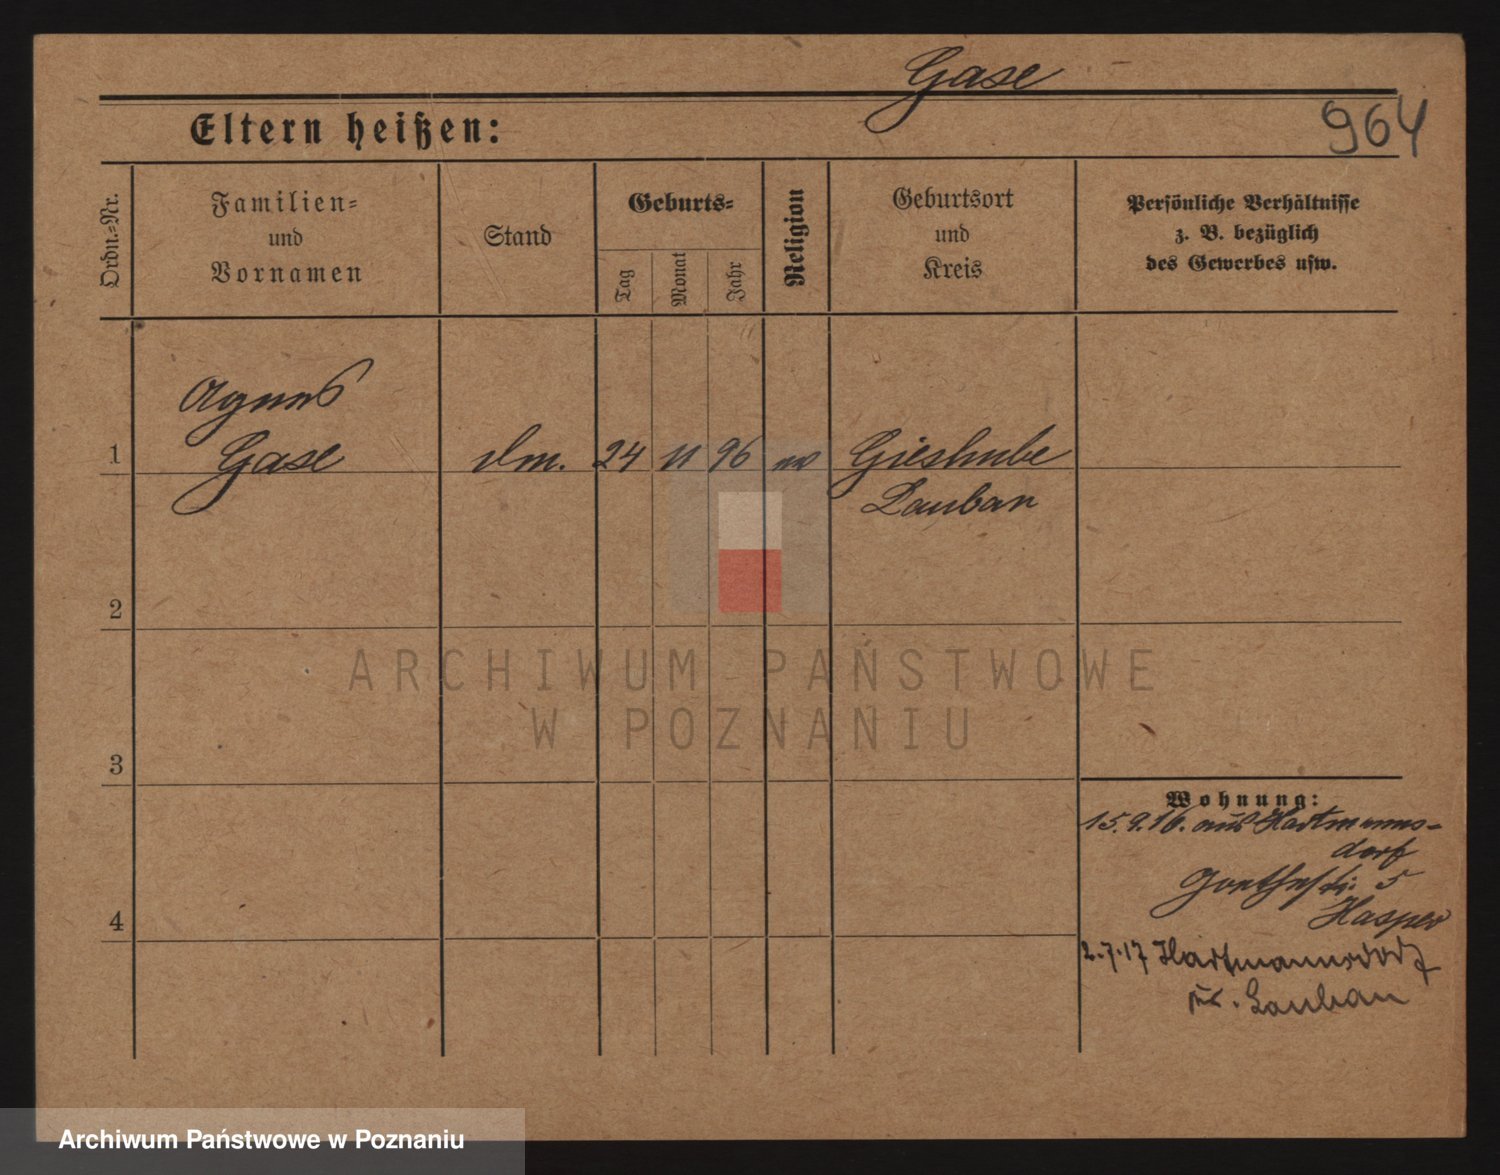 Gase
964
Eltern heißen:
Ordn.-Nr.
Familien-
und
Vornamen
Stand
Geburts-
Tag
Monat
Jahr
Religion
Geburtsort
und
Kreis
Persönliche Verhältnisse
z. B. bezüglich
des Gewerbes usw.
Agnes
1 Gase 24 11 96 Gieshube
Lauban
2
3
4
Wohnung:
15.9.16. aus Hartmanns-
dorf
Goethestr. 5
Hasper
2.7.17 Hartmannsdorf
Kr. Lauban
ARCHIWUM PAŃSTWOWE
W POZNANIU
Archiwum Państwowe w Poznaniu